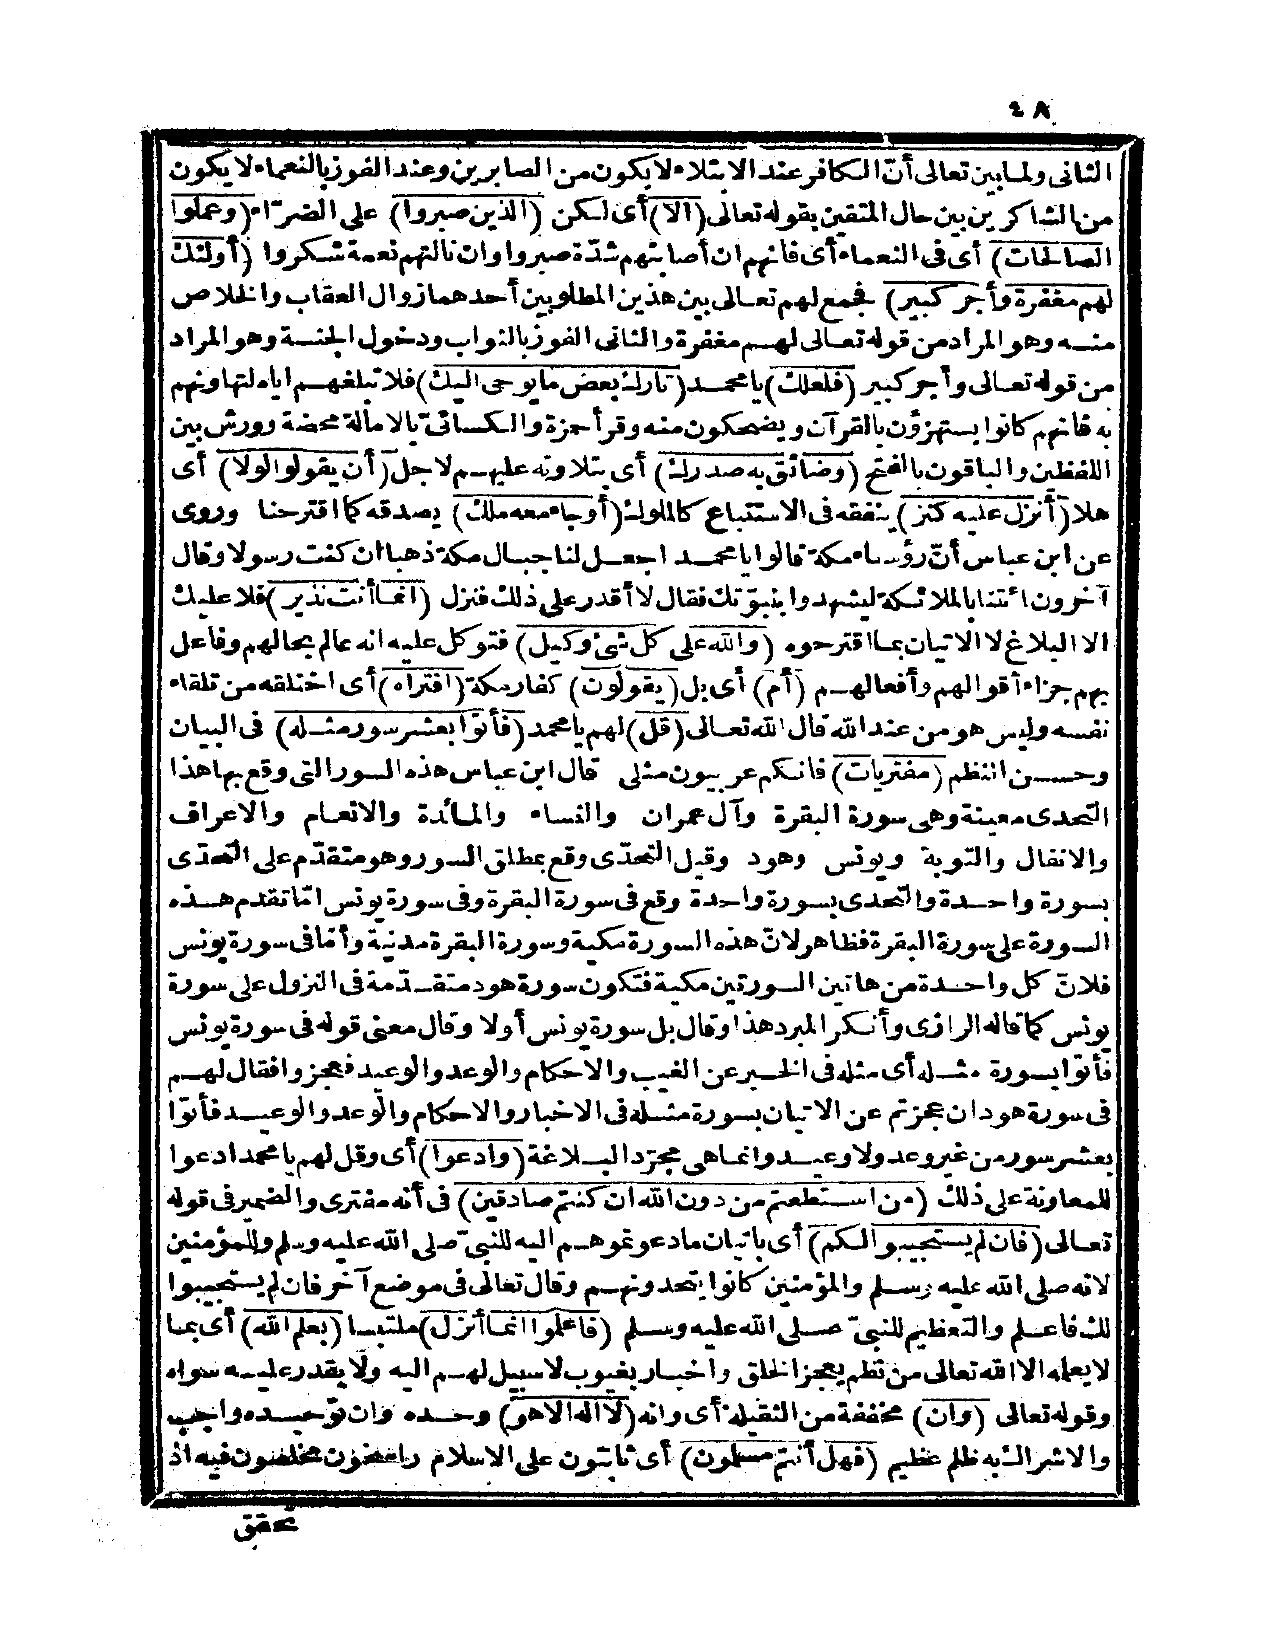 ٤٨
الثانى ولما بين تعالى أنّ الكافر عند الابتلاء لا يكون من الصابرين وعند الفوز بالنعماء لا يكون
من الشاكرين بين حال المتقين بقوله تعالى (الا) أى لكن (الذين صبروا) على الضرّاء (وعملوا
الصالحات) أى فى النعماء أى فانهم ان أصابتهم شدّة صبروا وان نالتهم نعمة شكروا (أولئك
لهم مغفرة وأجر كبير) فجمع لهم تعالى بين هذين المطلوبين أحدهما زوال العقاب والخلاص
منه وهو المراد من قوله تعالى لهم مغفرة والثانى الفوز بالثواب ودخول الجنة وهو المراد
من قوله تعالى وأجر كبير (فلعلك) يا محمد (تارك بعض ما يوحى اليك) فلا تبلغهم اياه لتهاونهم
به فانهم كانوا يستهزؤن بالقرآن ويضحكون منه وقرأ حمزة والكسائىّ بالامالة محضة وورش بين
اللفظين والباقون بالفتح (وضائق به صدرك) أى بتلاوته عليهم لاجل (أن يقولوا لولا) أى
هلا (أنزل عليه كنز) ينفقه فى الاستتباع كالملوك (أو جاء معه ملك) يصدقه كما اقترحنا وروى
عن ابن عباس أنّ رؤساء مكة قالوا يا محمد اجعل لنا جبال مكة ذهبا ان كنت رسولا وقال
آخرون ائتنا بالملائكة ليشهدوا بنبوّتك فقال لا أقدر على ذلك فنزل (انما أنت نذير) فلا عليك
الا البلاغ لا الاتيان بما اقترحوه (والله على كل شئ وكيل) فتوكل عليه انه عالم بحالهم وفاعل
بهم جزاء أقوالهم وأفعالهم (أم) أى بل (يقولون) كفار مكة (افتراه) أى اختلقه من تلقاء
نفسه وليس هو من عند الله قال الله تعالى (قل) لهم يا محمد (فأتوا بعشر سور مثله) فى البيان
وحسن النظم (مفتريات) فانكم عربيون مثلى قال ابن عباس هذه السور التى وقع بها هذا
التحدى معينة وهى سورة البقرة وآل عمران والنساء والمائدة والانعام والاعراف
والانفال والتوبة ويونس وهود وقيل التحدّى وقع بمطلق السور وهو متقدّم على التحدّى
بسورة واحدة والتحدى بسورة واحدة وقع فى سورة البقرة وفى سورة يونس امّا تقدم هذه
السورة على سورة البقرة فظاهر لانّ هذه السورة مكية وسورة البقرة مدنية وأمّا فى سورة يونس
فلانّ كل واحدة من هاتين السورتين مكية فتكون سورة هود متقدّمة فى النزول على سورة
يونس كما قاله الرازى وأنكر المبرد هذا وقال بل سورة يونس أولا وقال معنى قوله فى سورة يونس
فأتوا بسورة مثله أى مثله فى الخبر عن الغيب والاحكام والوعد والوعيد فعجزوا فقال لهم
فى سورة هود ان عجزتم عن الاتيان بسورة مثله فى الاخبار والاحكام والوعد والوعيد فأتوا
بعشر سور من غير وعد ولا وعيد وانما هى مجرّد البلاغة (وادعوا) أى وقل لهم يا محمد ادعوا
للمعاونة على ذلك (من استطعتم من دون الله ان كنتم صادقين) فى أنه مفترى والضمير فى قوله
تعالى (فان لم يستجيبوا لكم) أى باتيان ما دعوتموهم اليه للنبىّ صلى الله عليه وسلم وللمؤمنين
لانه صلى الله عليه وسلم والمؤمنين كانوا يتحدونهم وقال تعالى فى موضع آخر فان لم يستجيبوا
لك فاعلم والتعظيم للنبىّ صلى الله عليه وسلم (فاعلموا انما أنزل) ملتبسا (بعلم الله) أى بما
لا يعلمه الا الله تعالى من نظم يعجز الخلق واخبار بغيوب لا سبيل لهم اليه ولا يقدر عليه سواه
وقوله تعالى (وان) مخففة من الثقيلة أى وانه (لا اله الا هو) وحده وان توحيده واجب
والاشراك به ظلم عظيم (فهل أنتم مسلمون) أى ثابتون على الاسلام راسخون مخلصون فيه اذ
تحقق